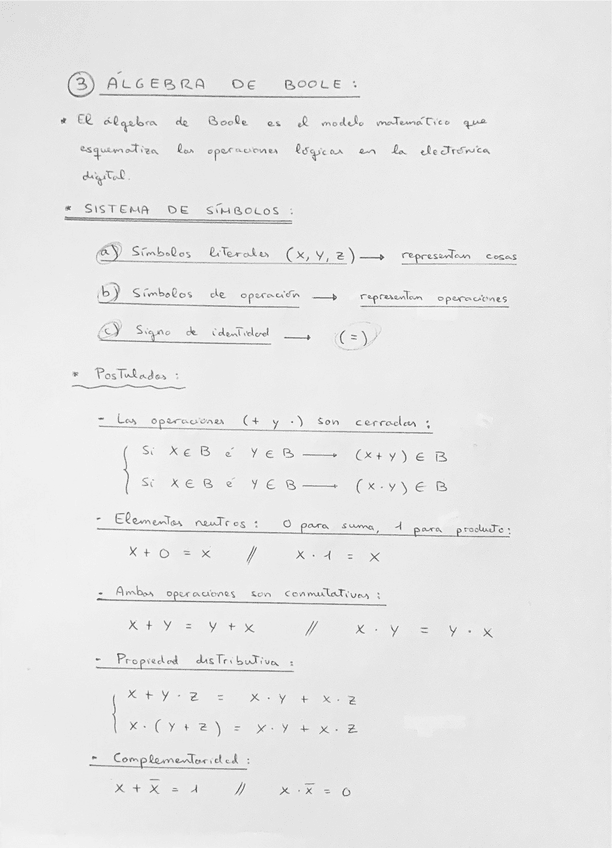 ③ ÁLGEBRA DE BOOLE:
* El álgebra de Boole es el modelo matemático que
esquematiza las operaciones lógicas en la electrónica
digital.
* SISTEMA DE SÍMBOLOS:
a) Símbolos literales (X, Y, Z) → representan cosas
b) Símbolos de operación → representan operaciones
c) Signo de identidad → (=)
* Postulados:
- Las operaciones (+ y ·) son cerradas:
Si X ∈ B é Y ∈ B → (X+Y) ∈ B
Si X ∈ B é Y ∈ B → (X·Y) ∈ B
- Elementos neutros: 0 para suma, 1 para producto:
X + 0 = X // X · 1 = X
- Ambas operaciones son conmutativas:
X + Y = Y + X // X · Y = Y · X
- Propiedad distributiva:
X + Y · Z = X · Y + X · Z
X · (Y + Z) = X · Y + X · Z
- Complementaridad:
X + X̅ = 1 // X · X̅ = 0